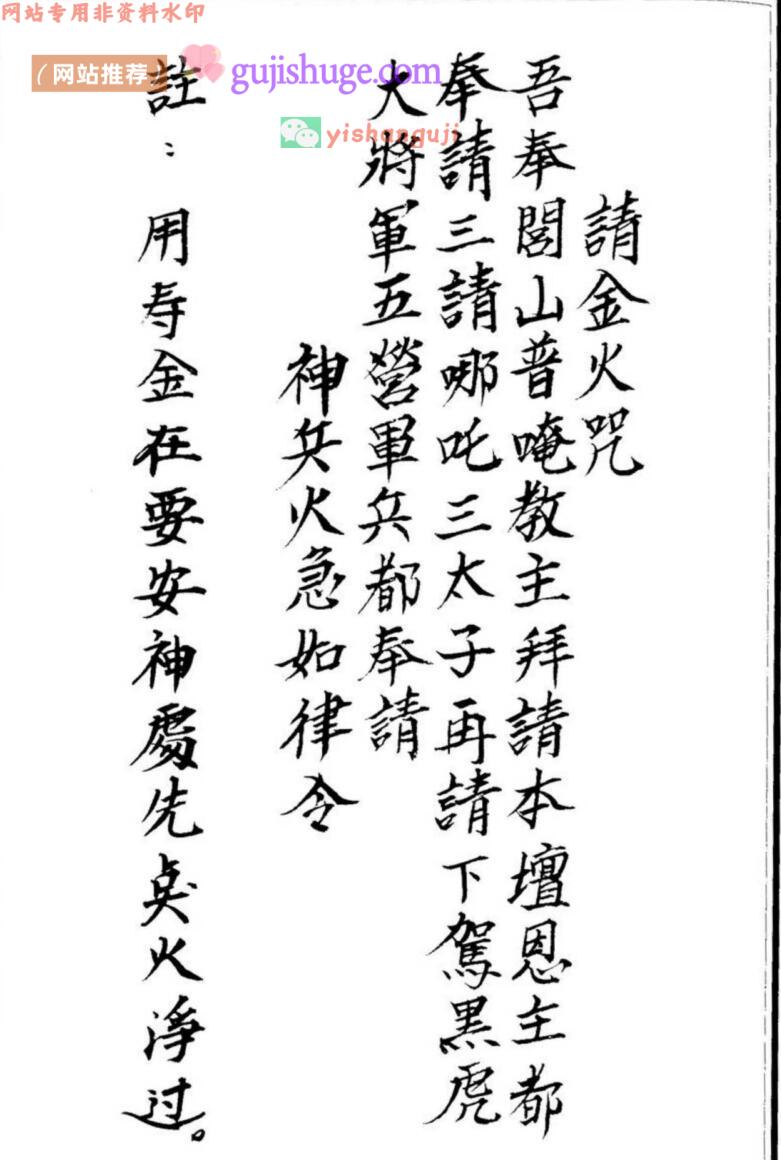 网站专用非资料水印
（网站推荐）
gujishuge.com
yishanguji
請金火咒
吾奉閭山普唵教主拜請本壇恩主都
奉請三請哪吒三太子再請下駕黑虎
大將軍五營軍兵都奉請
神兵火急如律令
註：用寿金在要安神處先点火淨过。